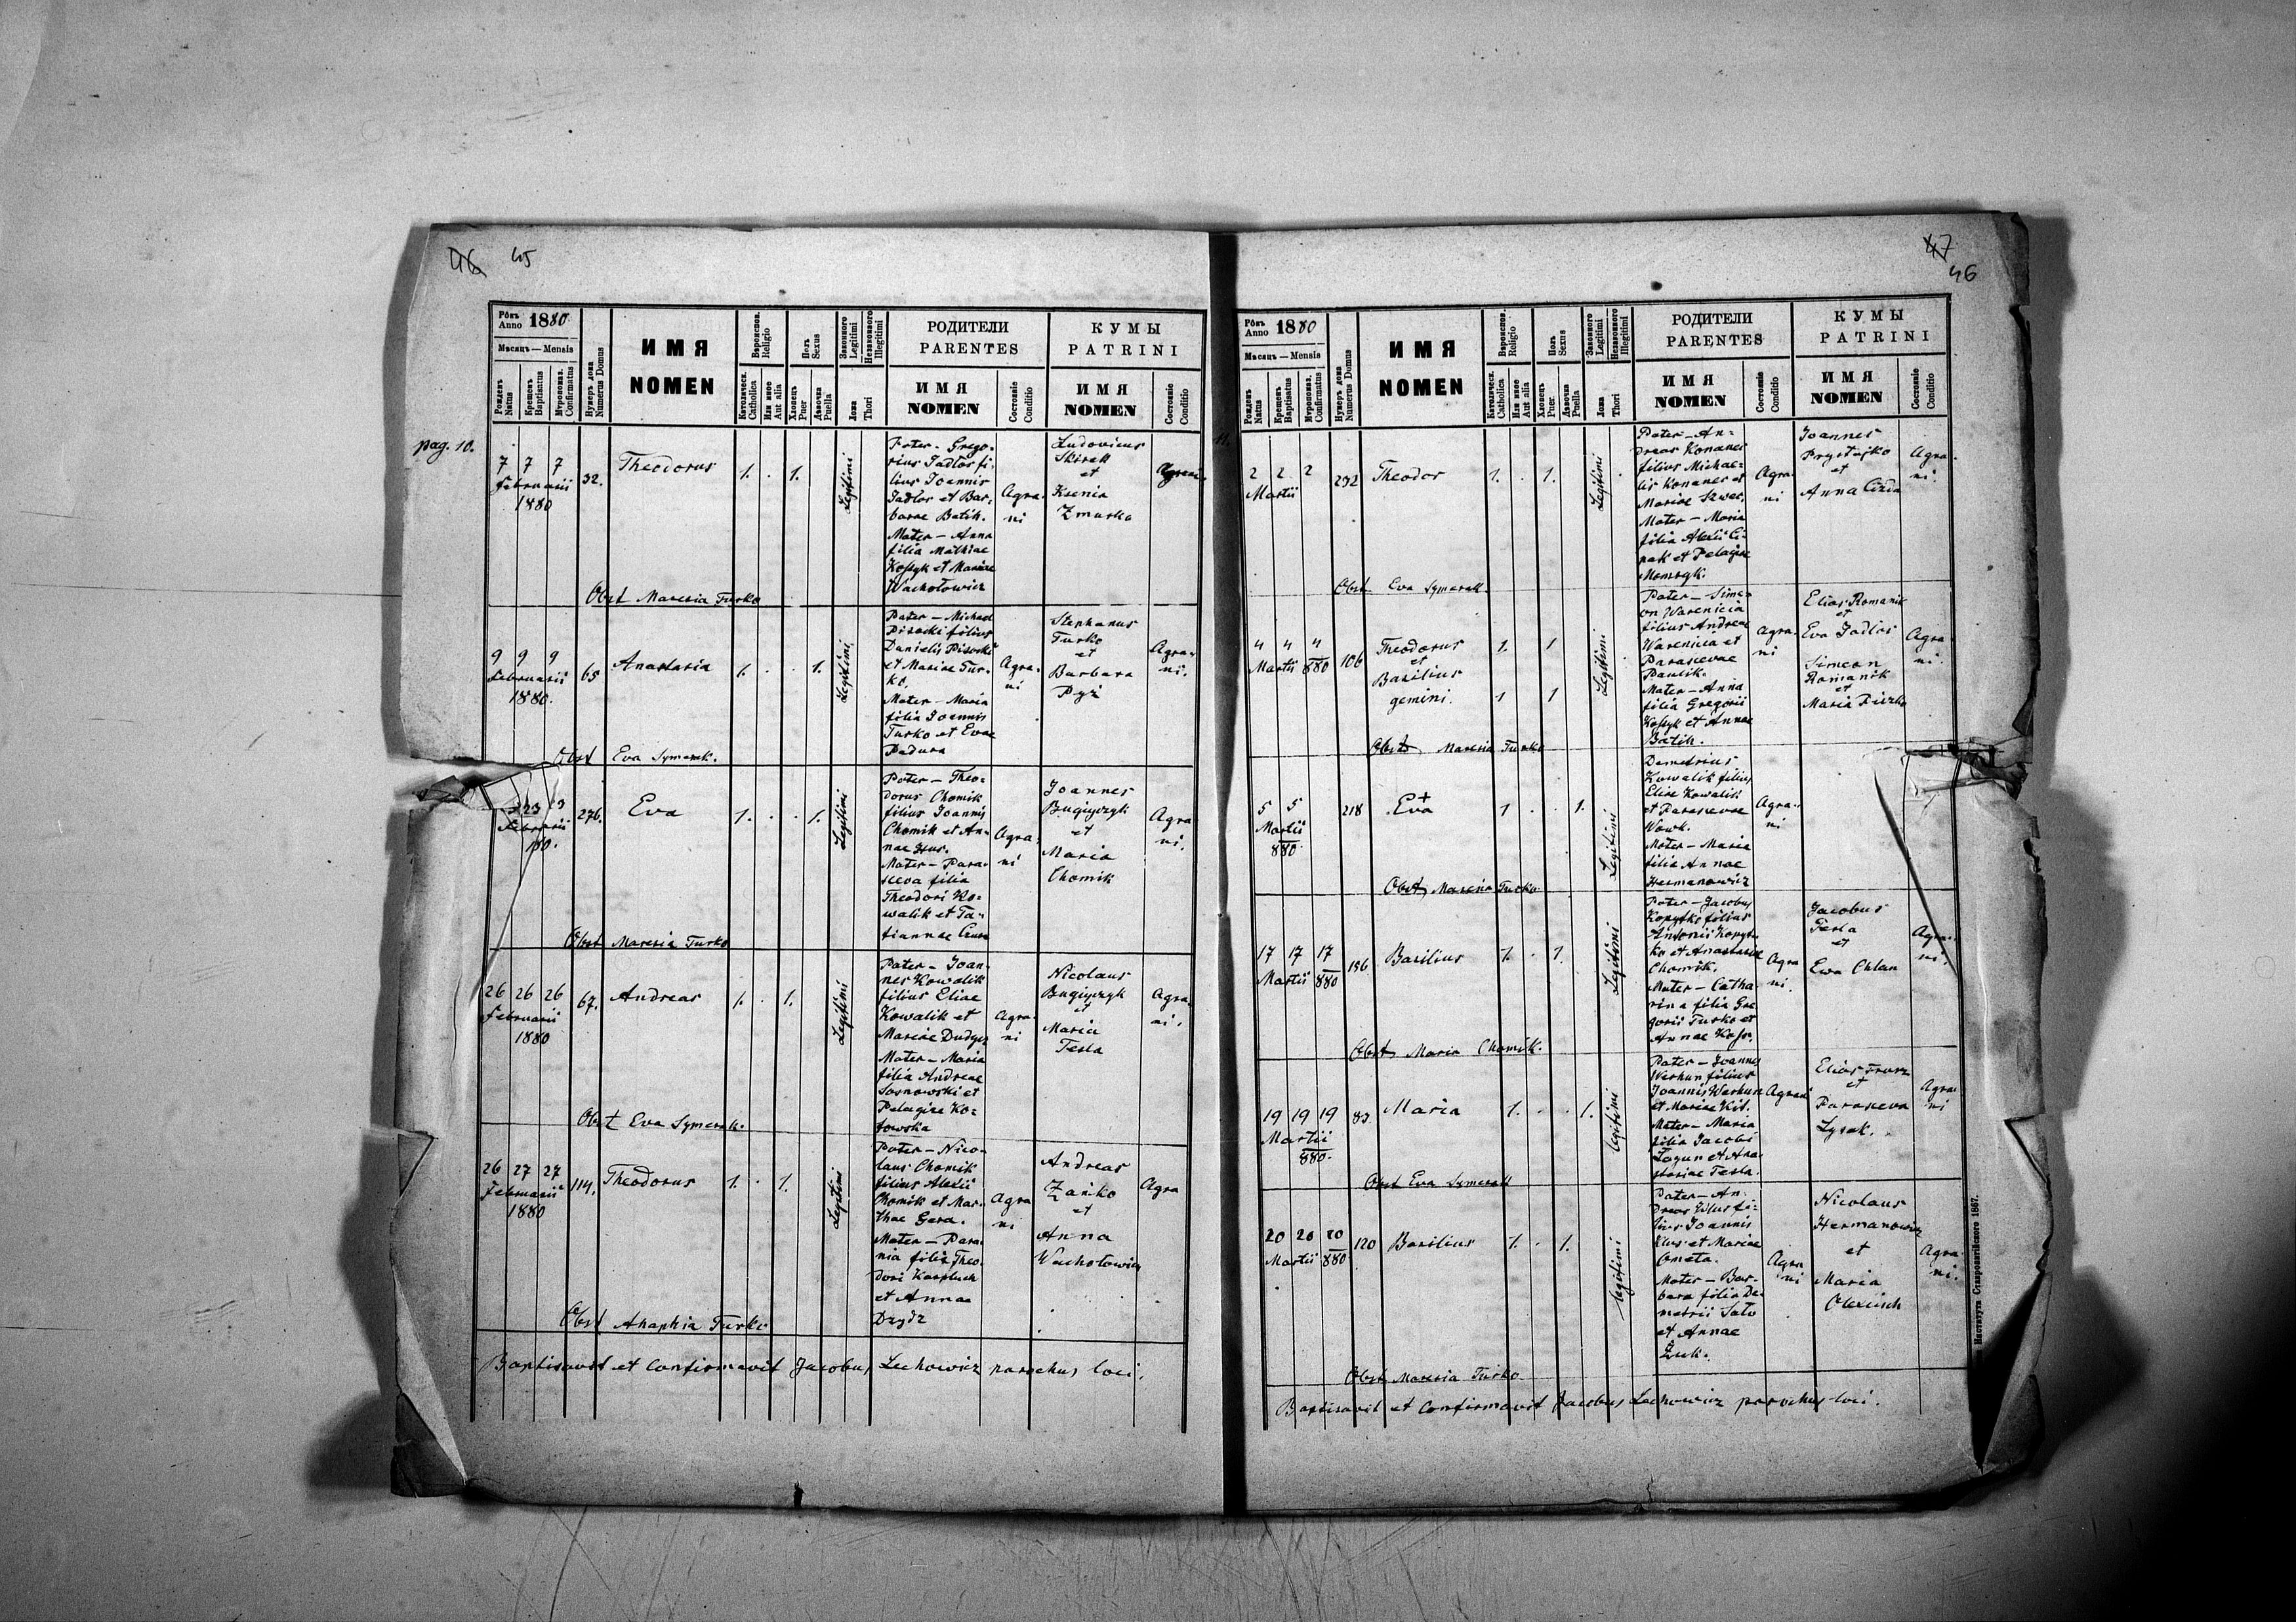 46 45
Рôкъ Anno 1880
Мѣсяцъ — Mensis
Рожденъ Natus
Крещенъ Baptisatus
Мѵрованъ. Confirmatus
Нумеръ дома Numerus Domus
ИМЯ
NOMEN
Вѣроиспов. Religio
Католическ. Catholica
Или иное Aut alia
Полъ Sexus
Хлопець Puer
Дѣвочка Puella
Законного Legitimi
Незаконного Illegitimi
Лона Thori
РОДИТЕЛИ
PARENTES
ИМЯ
NOMEN
Состояніе Conditio
КУМЫ
PATRINI
ИМЯ
NOMEN
Состояніе Conditio
pag. 10.
7 7 7
Februarii
1880
32.
Theodorus
1. . 1.
Legitimi
Pater - Grego-
rius Jadlos fi-
lius Joannis
Jadlos et Bar-
barae Batih.
Mater - Anna
filia Mathiae
Kossyk et Mariae
Wacholowicz
Agra-
ni
Ludovicus
Skirall
et
Ksenia
Zmurko
Agrani
Obst Maresia Turko
9 9 9
Februarii
1880.
65
Anastasia
1. . . 1.
Legitimi
Pater - Michael
Pisocki filius
Danielis Pisocki
et Mariae Tur-
ko.
Mater - Maria
filia Joannis
Turko et Evae
Padura
Agra-
ni
Stephanus
Turko
et
Barbara
Pyz
Agra-
ni.
Obst Eva Symerek.
23
Februarii
880.
276.
Eva
1. . . 1.
Legitimi
Pater - Theo-
dorus Chomik
filius Joannis
Chomik et An-
nae Hus.
Mater - Para-
sceva filia
Theodori Ko-
walik et Ta-
tiannae
Agra-
ni
Joannes
Bugiyczyk
et
Maria
Chomik
Agra
ni.
Obst Maresia Turko
26 26 26
Februarii
1880
67.
Andreas
1. . 1.
Legitimi
Pater - Joan-
nes Kowalik
filius Eliae
Kowalik et
Mariae Dudycz
Mater - Maria
filia Andreae
Sosnowski et
Pelagiae Ko-
towska
Agra-
ni
Nicolaus
Bugiyczyk
et
Maria
Tesla
Agra-
ni.
Obst Eva Symerek.
26 27 27
Februarii
1880
114.
Theodorus
1. . 1.
Legitimi
Pater - Nico-
laus Chomik
filius Alexii
Chomik et Mar-
thae Gera.
Mater - Para-
nia filia Theo-
dori Karpluch
et Annae
Dzydz
Agra
ni
Andreas
Zańko
et
Anna
Wacholowicz
Agra
Obst Anaphia Turko
Baptisavit et Confirmavit Jacobus Lechowicz parochus loci.
47
46
Рôкъ Anno 1880
Мѣсяцъ — Mensis
Рожденъ Natus
Крещенъ Baptisatus
Мѵрованъ. Confirmatus
Нумеръ дома Numerus Domus
ИМЯ
NOMEN
Вѣроиспов. Religio
Католическ. Catholica
Или иное Aut alia
Полъ Sexus
Хлопець Puer
Дѣвочка Puella
Законного Legitimi
Незаконного Illegitimi
Лона Thori
РОДИТЕЛИ
PARENTES
ИМЯ
NOMEN
Состояніе Conditio
КУМЫ
PATRINI
ИМЯ
NOMEN
Состояніе Conditio
11.
2 2 2
Martii
232
Theodor
1. . 1.
Legitimi
Pater - An-
dreas Konanec
filius Michae-
lis Konanec et
Mariae Szwec.
Mater - Maria
filia Alexii Ci-
pak et Pelagiae
Momryk.
Agra-
ni
Joannes
Prystajko
et
Anna
Agra-
ni.
Obst. Eva Symerek.
4 4 4
Martii 880
106
Theodorus
et
Basilius
gemini.
1. 1
1 1
Legitimi
Pater - Sime-
on Warenicia
filius Andreae
Warenicia et
Parascevae
Paulik.
Mater - Anna
filia Gregorii
Kossyk et Annae
Batih.
Agra-
ni
Elias Romanik
et
Eva Jadlos
Simeon
Romanik
et
Maria
Agra-
ni.
Obst Maresia Turko
5 5
Martii
880.
218
Eva +
1 . . 1.
Legitimi
Demetrius
Kowalik filius
Eliae Kowalik
et Parascevae
Wowk.
Mater - Maria
filia Annae
Hermanowicz
Agra-
ni
Obst Maresia Turko
17 17 17
Martii 880
156
Basilius
1. . 1.
Legitimi
Pater - Jacobus
Kopytko filius
Antonii Kopyt-
ko et Anastasiae
Chomik.
Mater - Catha-
rina filia Gre-
gorii Turko et
Annae
Agra
ni.
Jacobus
Tesla
et
Ewa Chlan
Agra-
ni.
Obst Maria Chomik.
19 19 19
Martii
880.
83.
Maria
1. . . 1.
legitimi
Pater - Joannes
Werhun filius
Joannis Werhun
et Mariae Kit.
Mater - Maria
filia Jacobi
Lagun et Ana-
stasiae Tesla.
Agrani
Elias
et
Parasceva
Lysak.
Agra-
ni
Obst Eva Symerek
20 20 20
Martii 880
120
Basilius
1. . 1.
legitimi
Pater - An-
dreas Hlus fi-
lius Joannis
Hlus et Mariae
Kmeta.
Mater - Bar-
bara filia De-
metrii Salo
et Annae
Żuk.
Agra
ni
Nicolaus
Hermanowicz
et
Maria
Olexiuch
Agra-
ni.
Obst Maresia Turko
Baptisavit et Confirmavit Jacobus Lechowicz parochus loci.
Института Ставропигійского 1867.